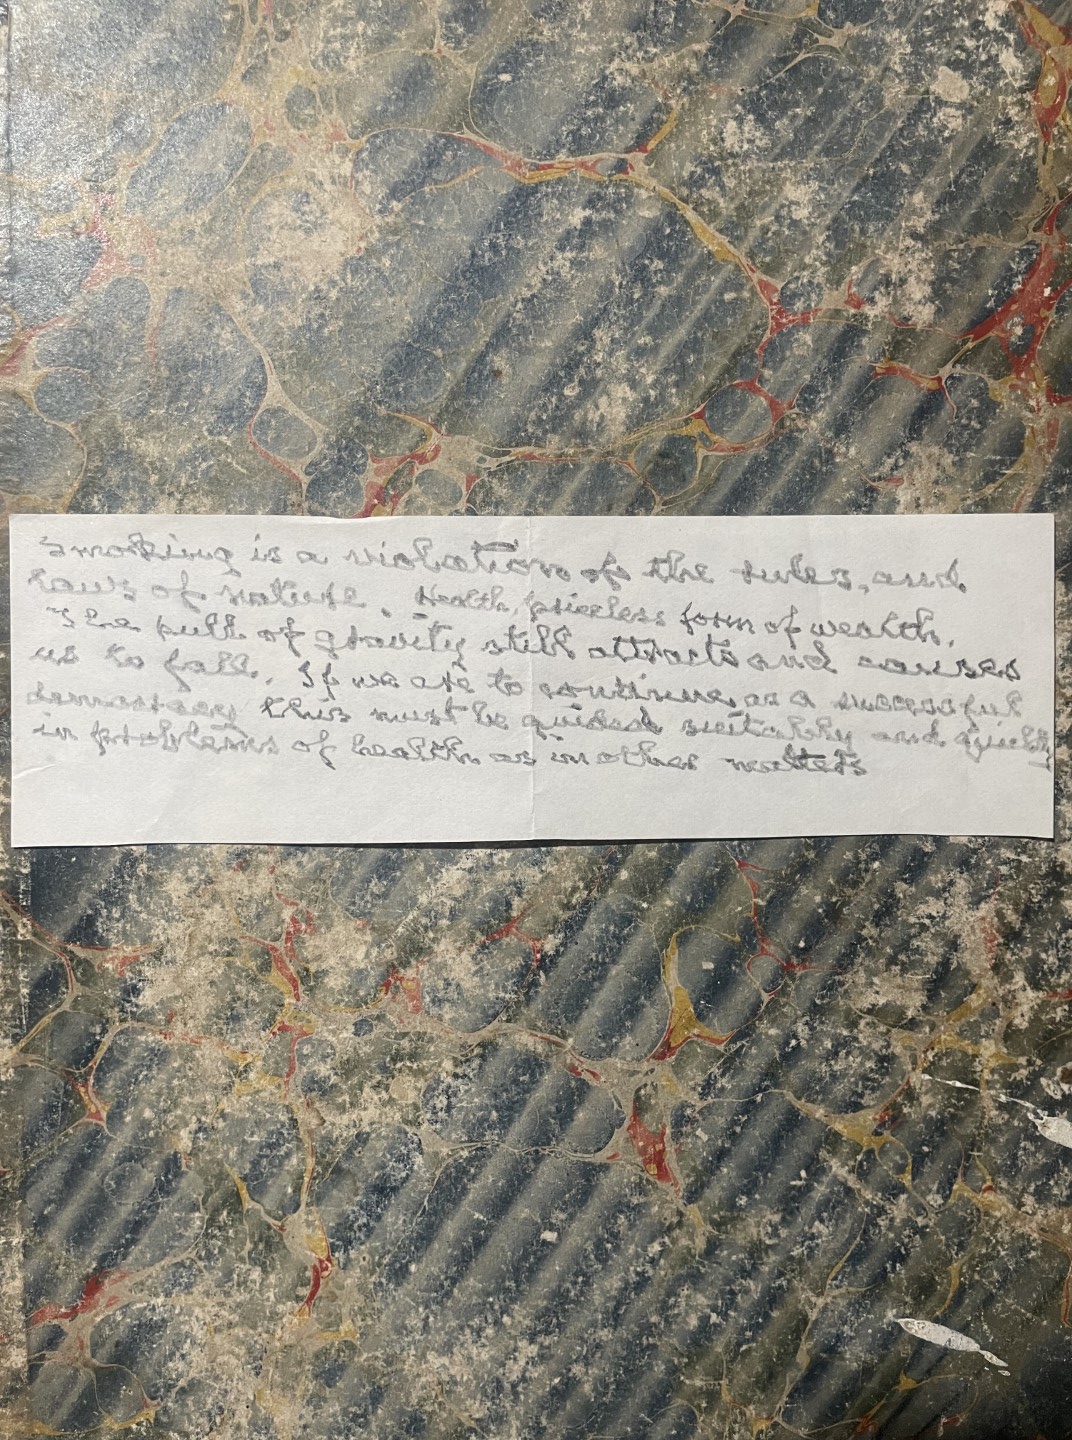 Smoking is a violation of the rules, and
laws of nature. Health, priceless form of wealth.
The pull of gravity still attracts and causes
us to fall. If we are to continue, as a successful
democracy this must be guided suitably and quickly
in problems of health as in other matters